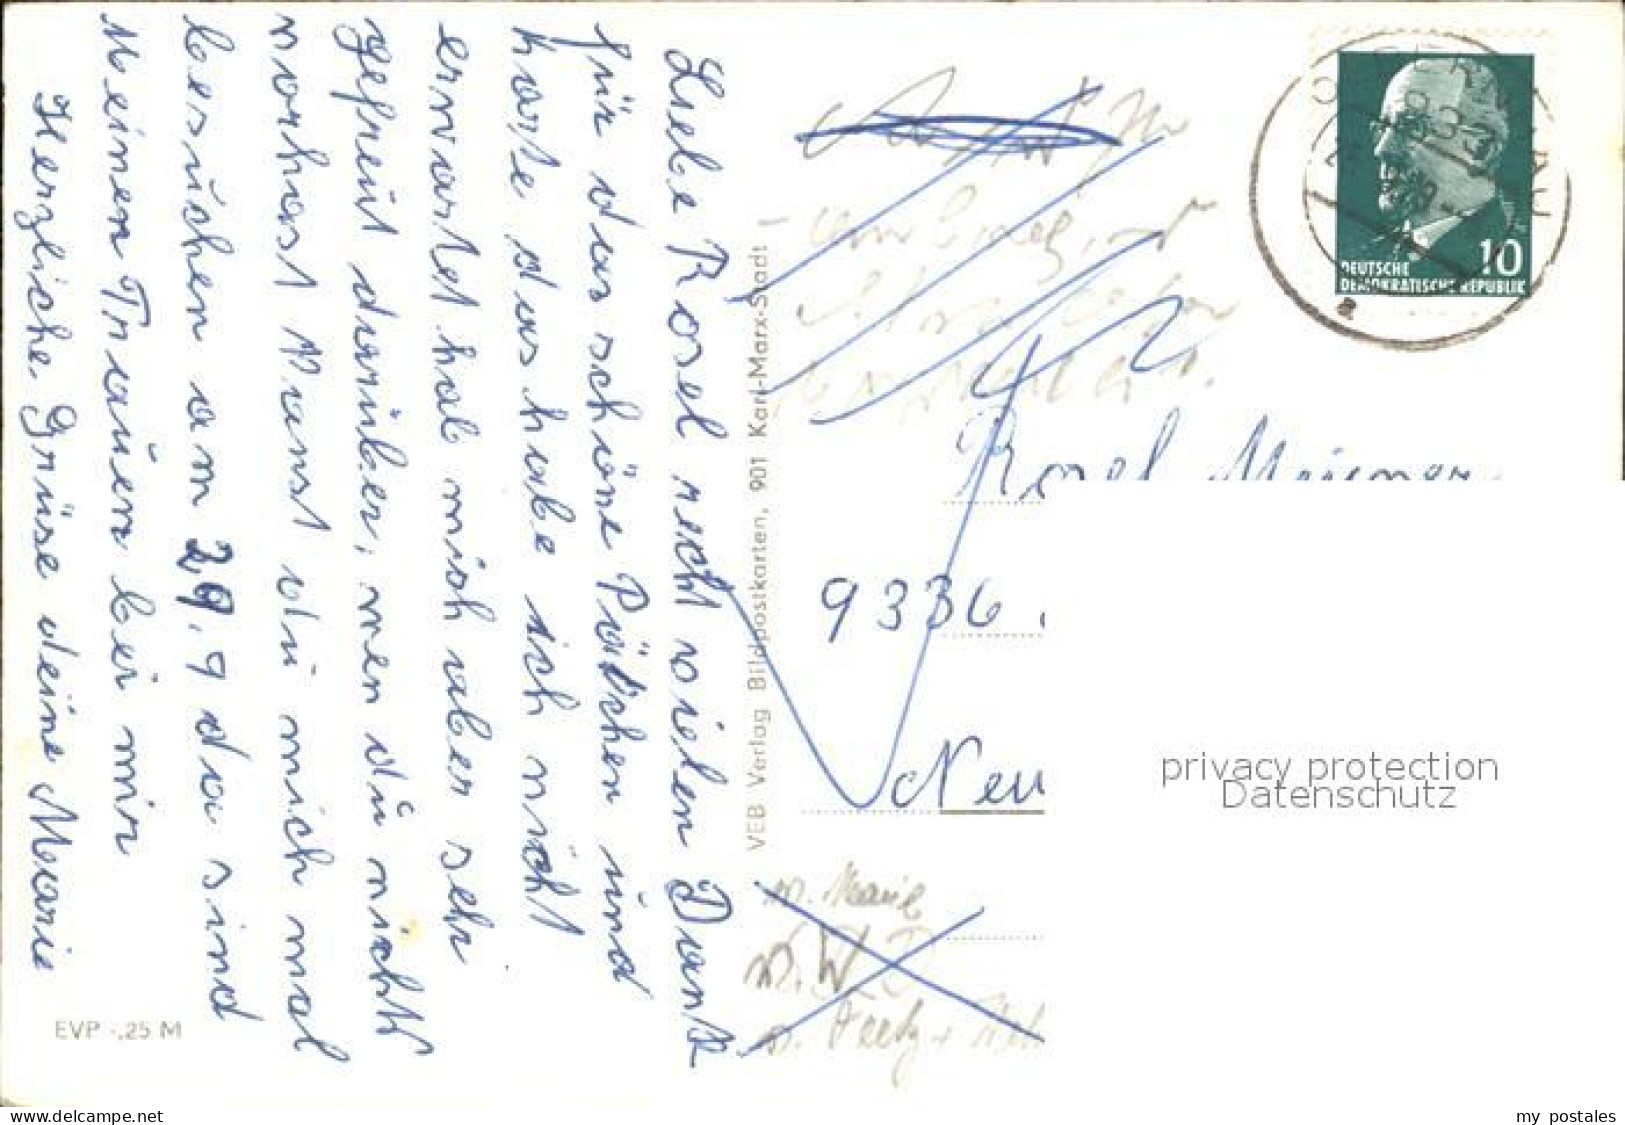 Liebe Rosel recht vielen Dank
für das schöne Päckchen und
Karte das habe ich nicht
erwartet hab mich aber sehr
gefreut darüber, wen du nicht
vorhast kanst du mich mal
besuchen am 29. 9 da sind
meinen Trauen bei mir
Herzliche Grüse deine Marie
EVP -,25 M
VEB Verlag Bildpostkarten, 901 Karl-Marx-Stadt
10
DEUTSCHE
DEMOKRATISCHE REPUBLIK
a
Rosel
9336
Neu
privacy protection
Datenschutz
v. Marie
www.delcampe.net
my_postales